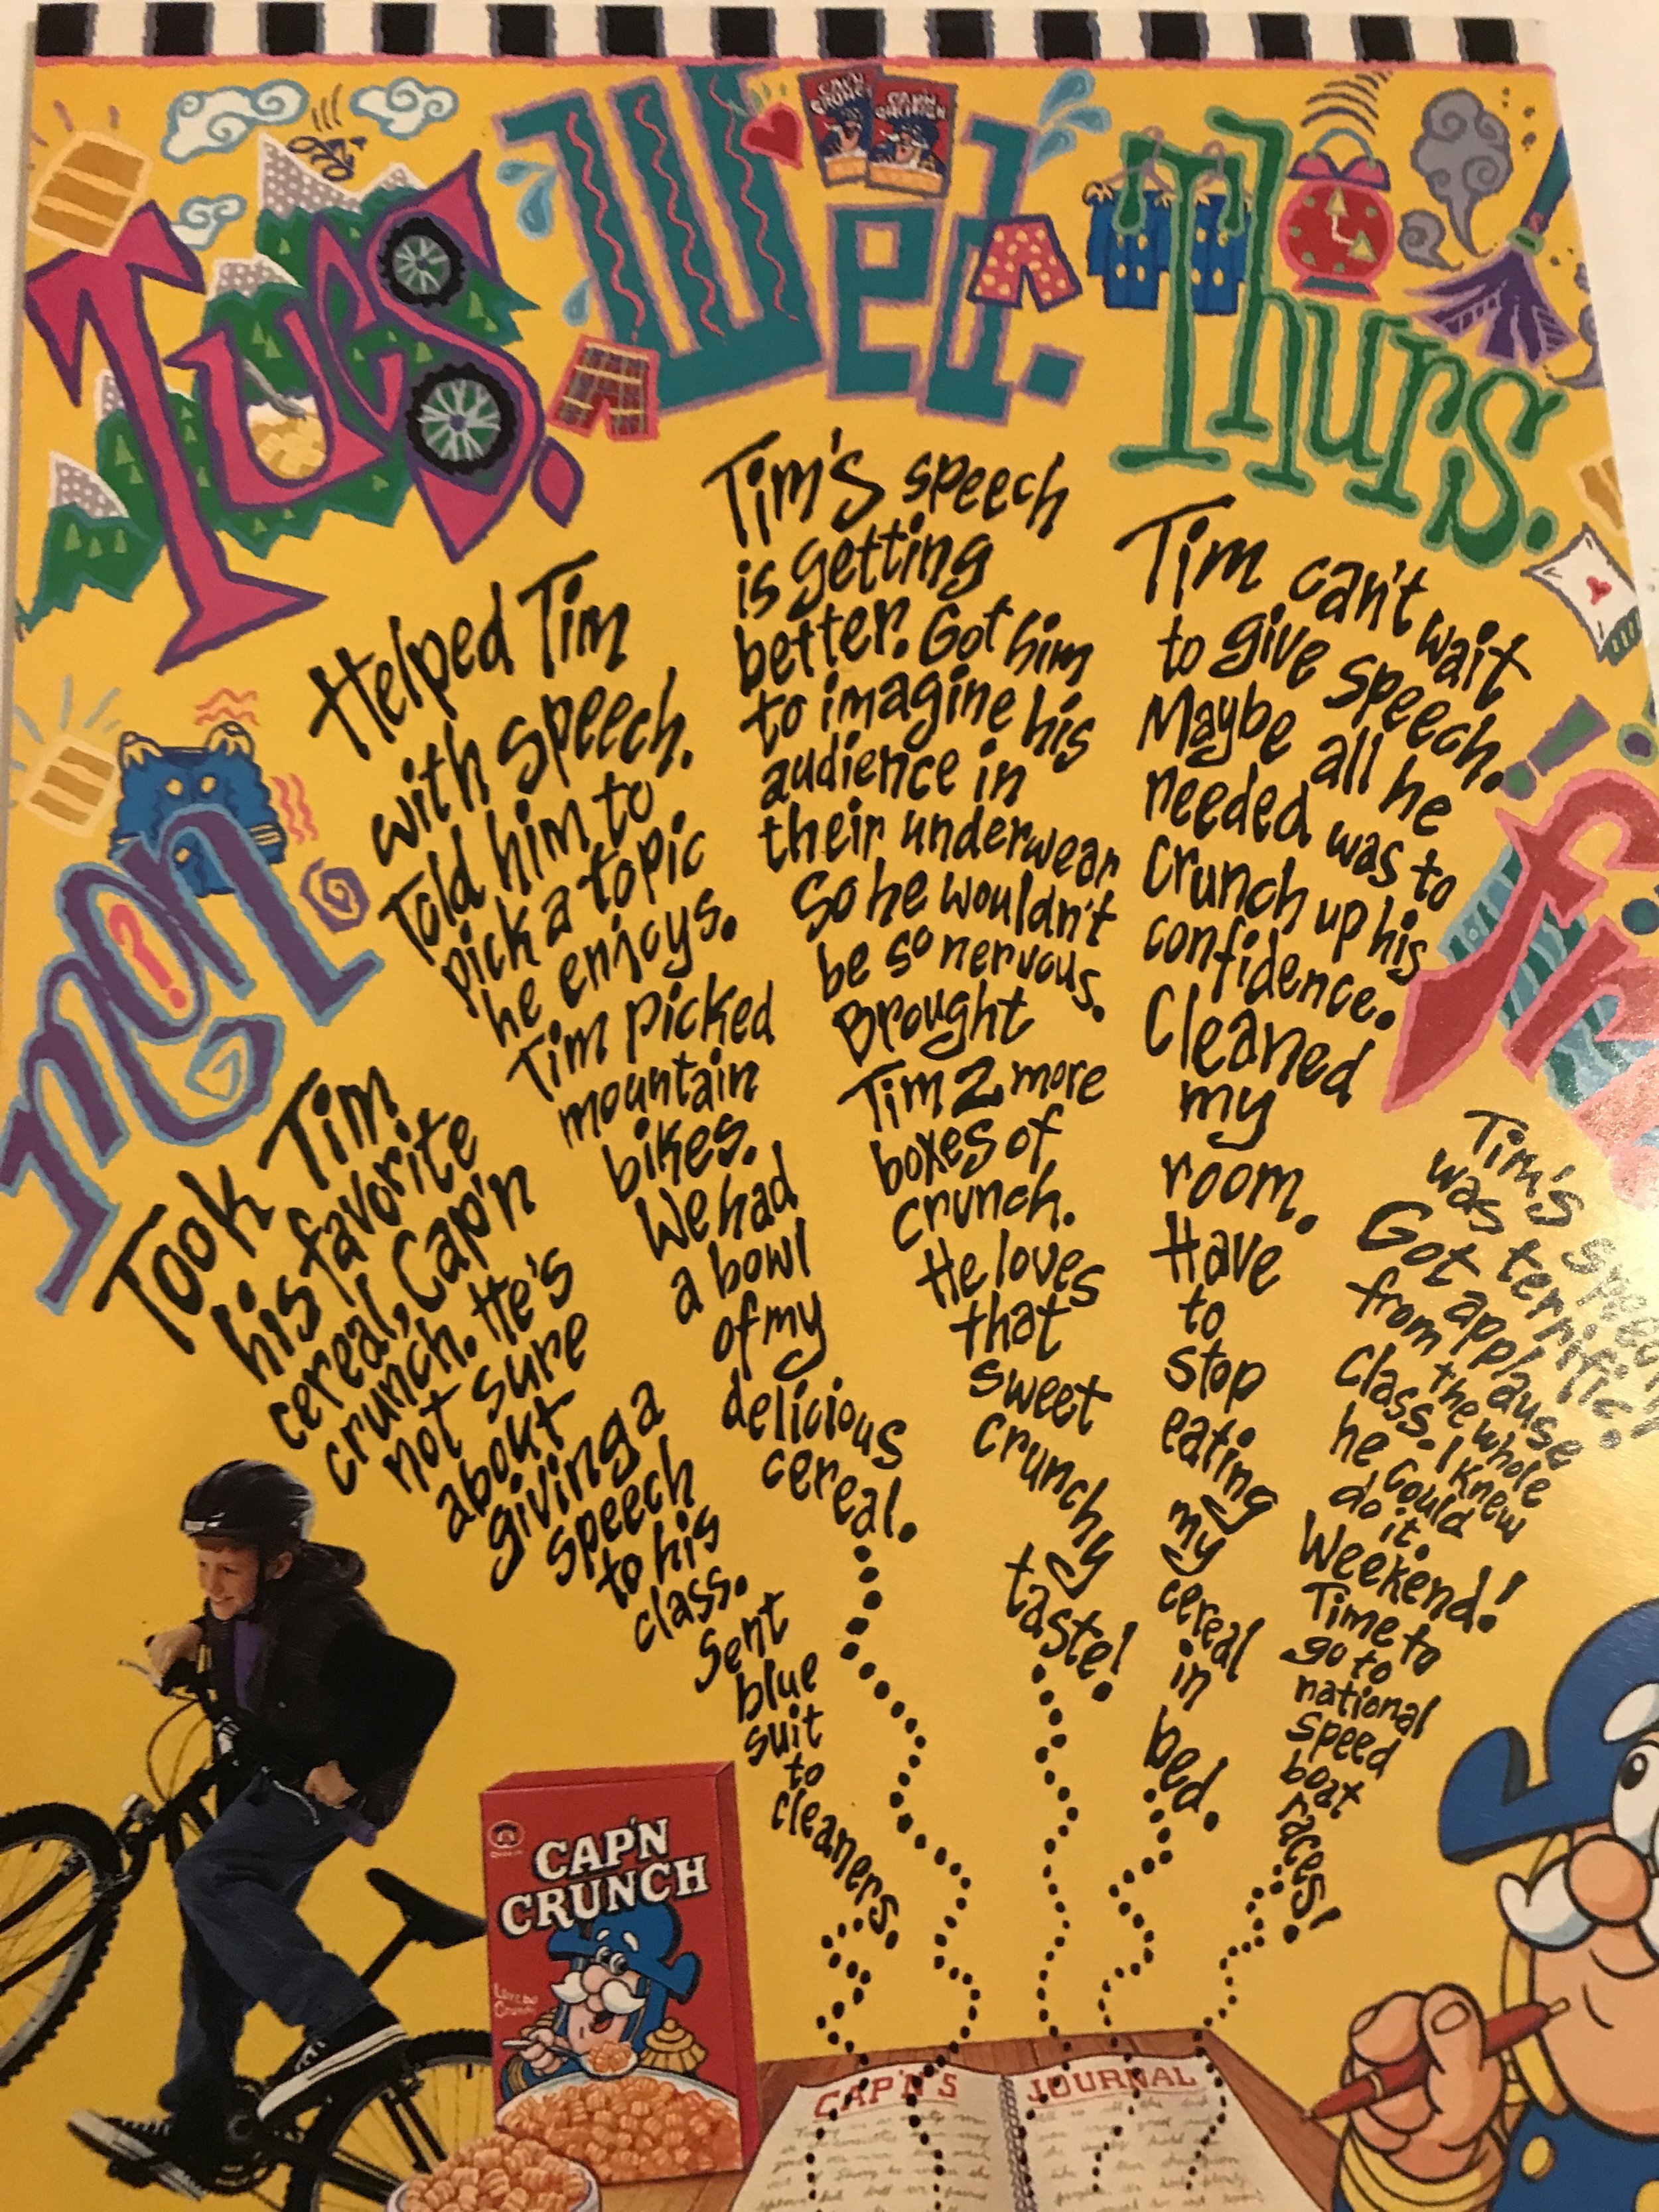 Mon
?
Took Tim
his favorite
cereal, Cap'n
crunch. He's
not sure
about
giving a
speech
to his
class.
Sent
blue
suit
to
cleaners.
Tues.
Helped Tim
with speech.
Told him to
pick a topic
he enjoys.
Tim picked
mountain
bikes.
We had
a bowl
of my
delicious
cereal.
Wed.
CAP'N
CRUNCH
CAP'N
CRUNCH
Tim's speech
is getting
better. Got him
to imagine his
audience in
their underwear
so he wouldn't
be so nervous.
Brought
Tim 2 more
boxes of
crunch.
He loves
that
sweet
crunchy
taste!
Thurs.
Tim can't wait
to give speech.
Maybe all he
needed was to
crunch up his
confidence.
Cleaned
my
room.
Have
to
stop
eating
my
cereal
in
bed.
fri
!
Tim's speech
was terrific!
Got applause
from the whole
class. I knew
he could
do it.
Weekend!
Time to
go to
national
speed
boat
races!
CAP'N
CRUNCH
CAP'N'S JOURNAL